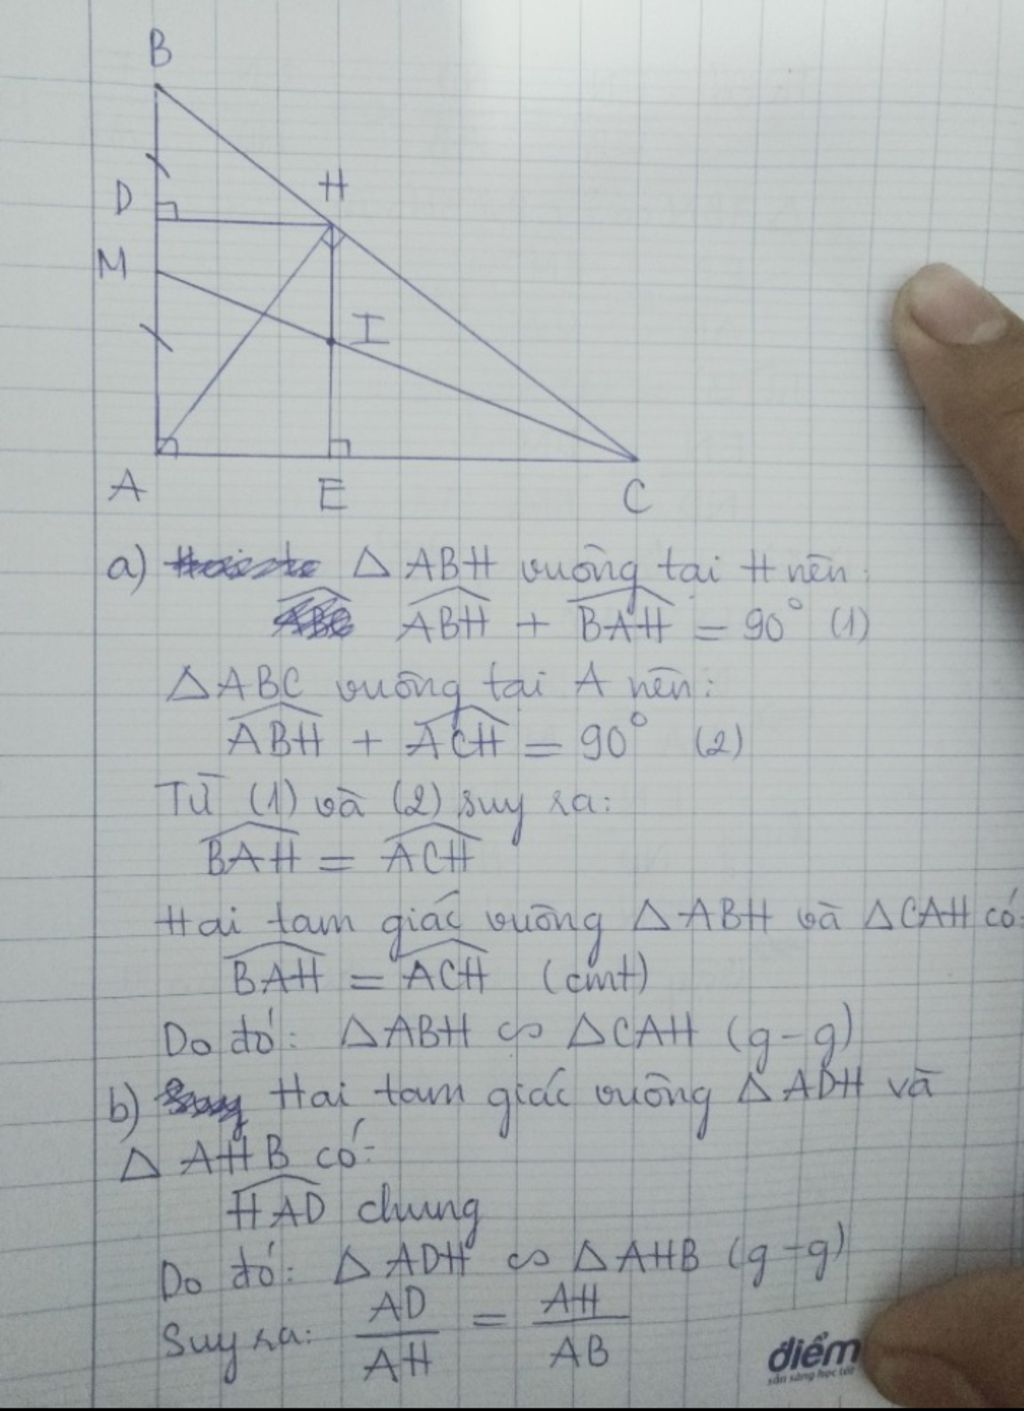 B
H
D
M
I
A
E
C
a) △ABH vuông tại H nên:
ABH + BAH = 90° (1)
△ABC vuông tại A nên:
ABH + ACH = 90° (2)
Từ (1) và (2) suy ra:
BAH = ACH
Hai tam giác vuông △ABH và △CAH có:
BAH = ACH (cmt)
Do đó: △ABH ∽ △CAH (g-g)
b) Hai tam giác vuông △ADH và
△AHB có:
HAD chung
Do đó: △ADH ∽ △AHB (g-g)
Suy ra: AD/AH = AH/AB
điểm
sẵn sàng học tốt